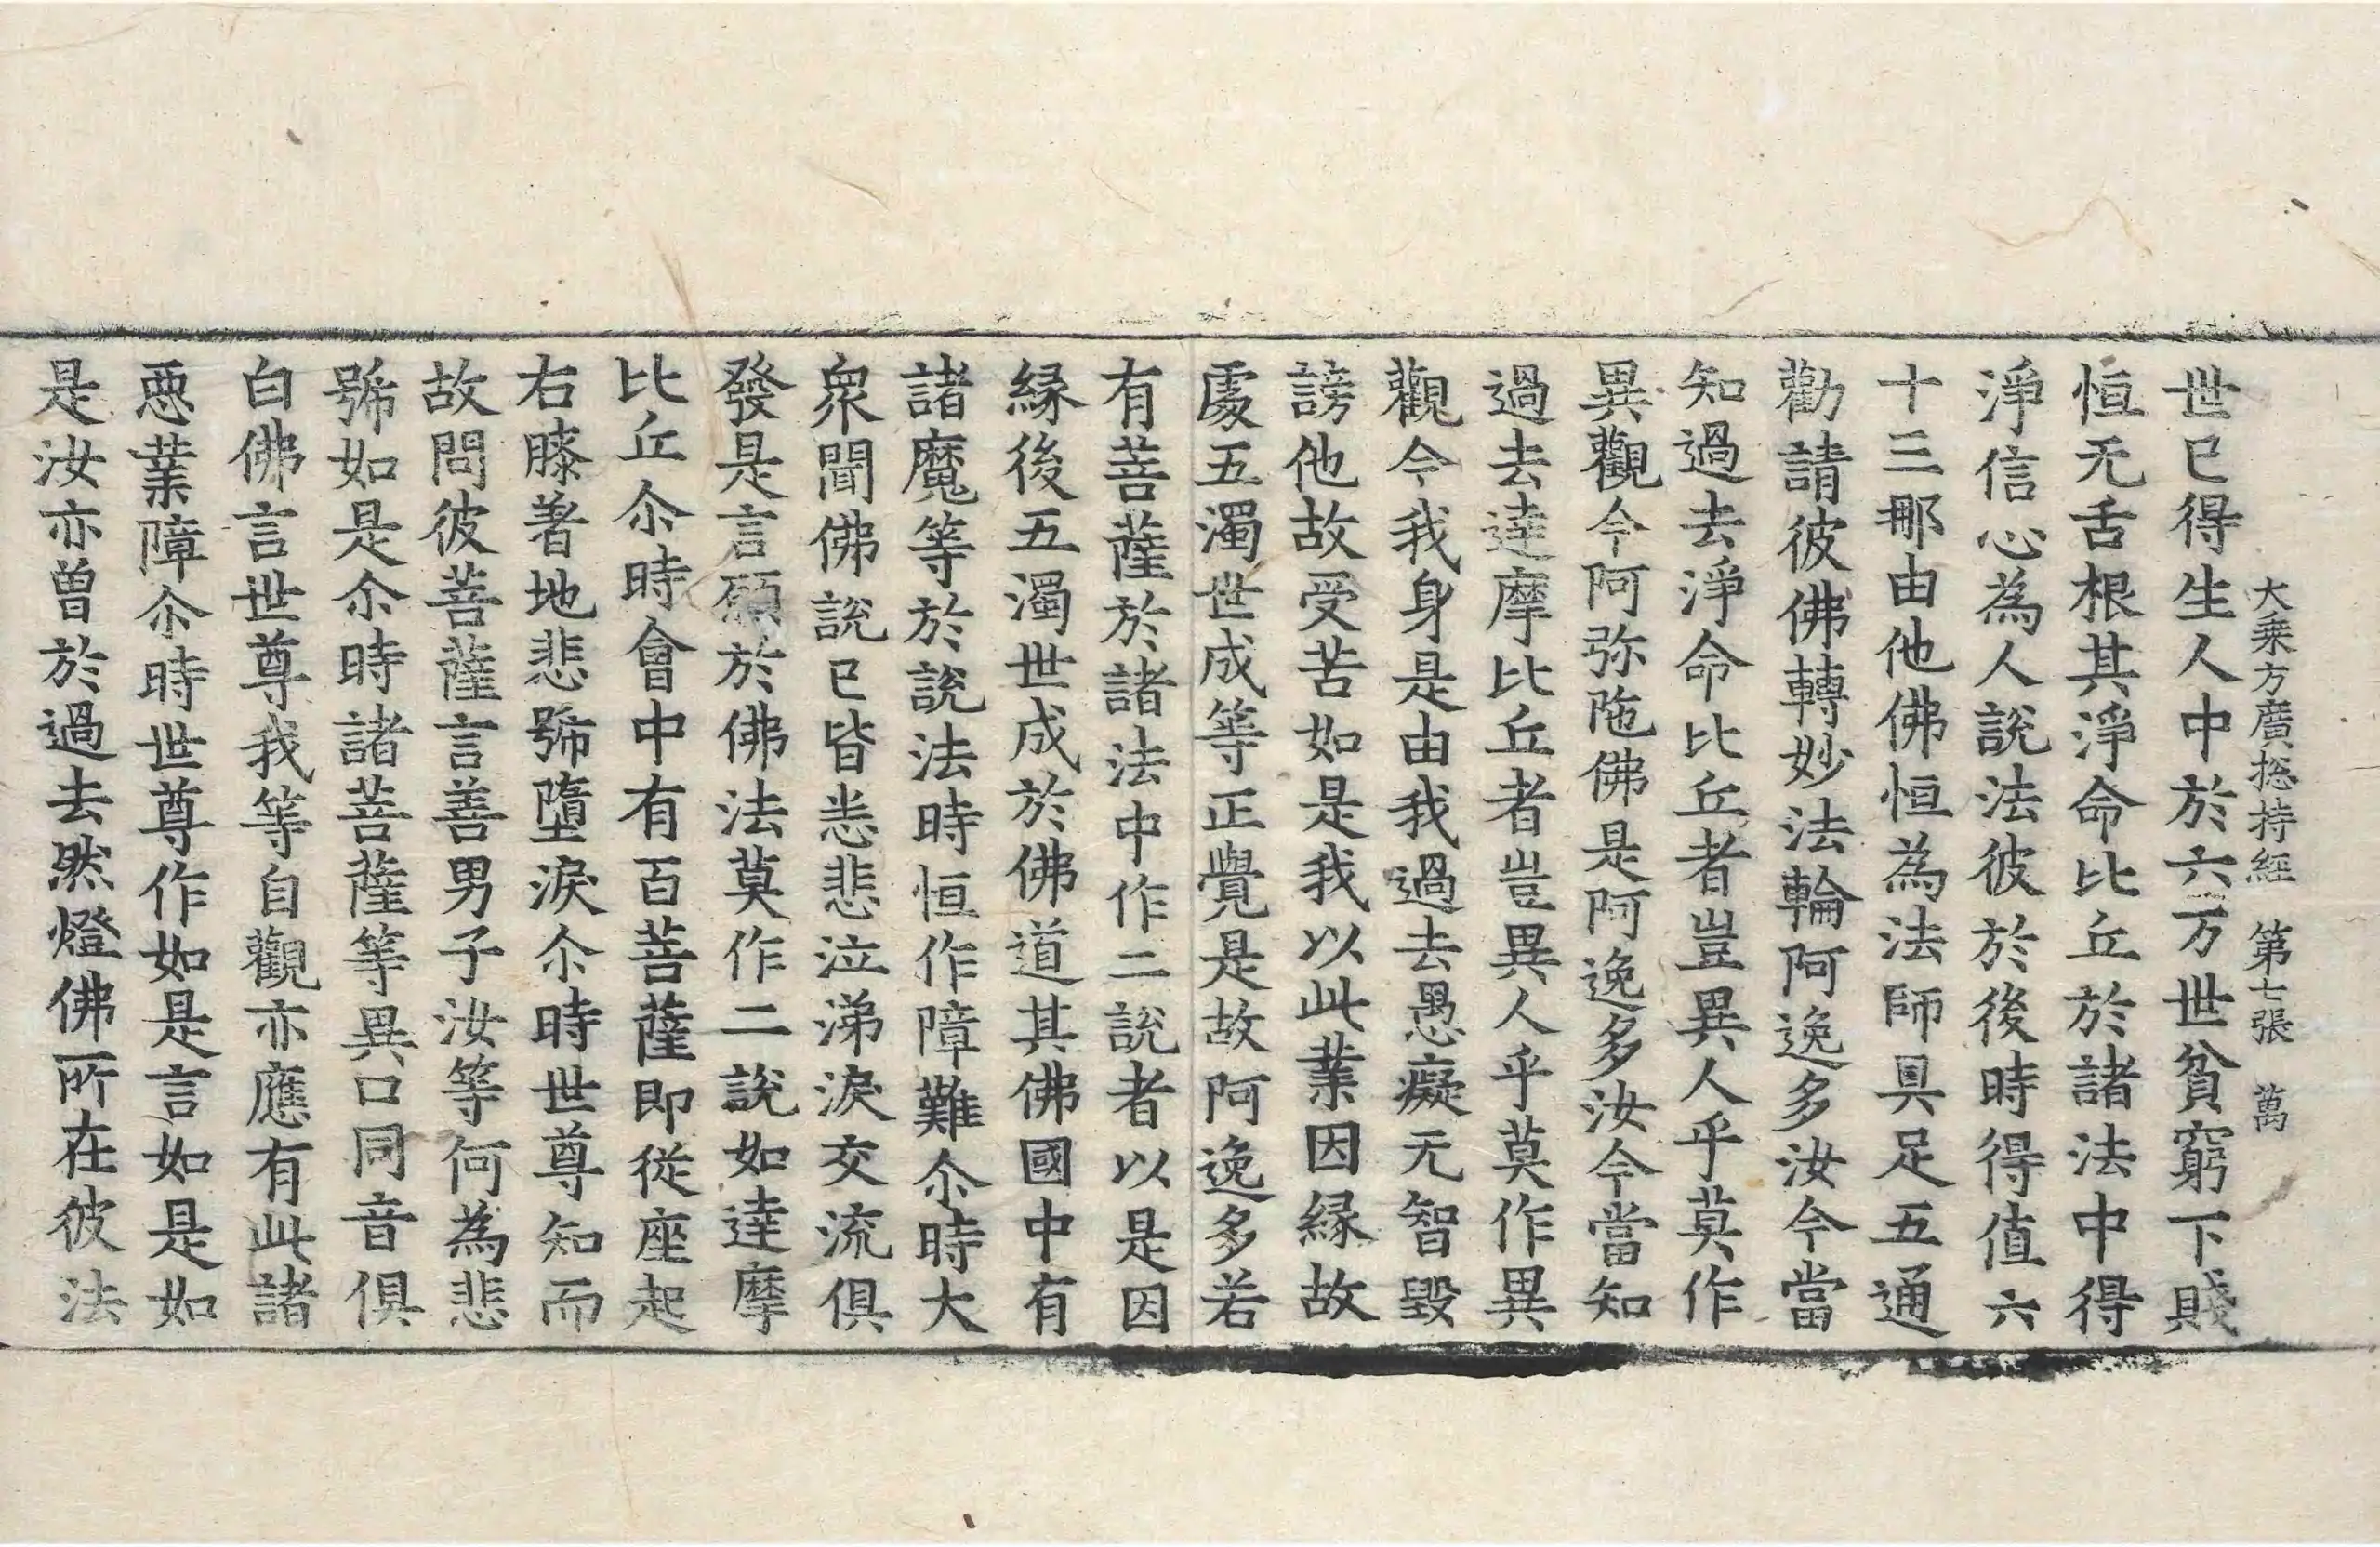 大乗方廣捴持經 第七張 萬
世已得生人中於六万世貧窮下賤
恒无舌根其淨命比丘於諸法中得
淨信心為人説法彼於後時得值六
十三那由他佛恒為法師具足五通
勸請彼佛轉妙法輪阿逸多汝今當
知過去淨命比丘者豈異人乎莫作
異觀今阿弥陁佛是阿逸多汝今當知
過去達摩比丘者豈異人乎莫作異
觀今我身是由我過去愚癡无智毀
謗他故受苦如是我以此業因縁故
處五濁世成等正覺是故阿逸多若
有菩薩於諸法中作二説者以是因
縁後五濁世成於佛道其佛國中有
諸魔等於説法時恒作障難尒時大
衆聞佛説已皆悲悲泣涕淚交流俱
發是言願於佛法莫作二説如達摩
比丘尒時會中有百菩薩即從座起
右膝著地悲號墮淚尒時世尊知而
故問彼菩薩言善男子汝等何為悲
號如是尒時諸菩薩等異口同音俱
白佛言世尊我等自觀亦應有此諸
惡業障尒時世尊作如是言如是如
是汝亦曽於過去然燈佛所在彼法